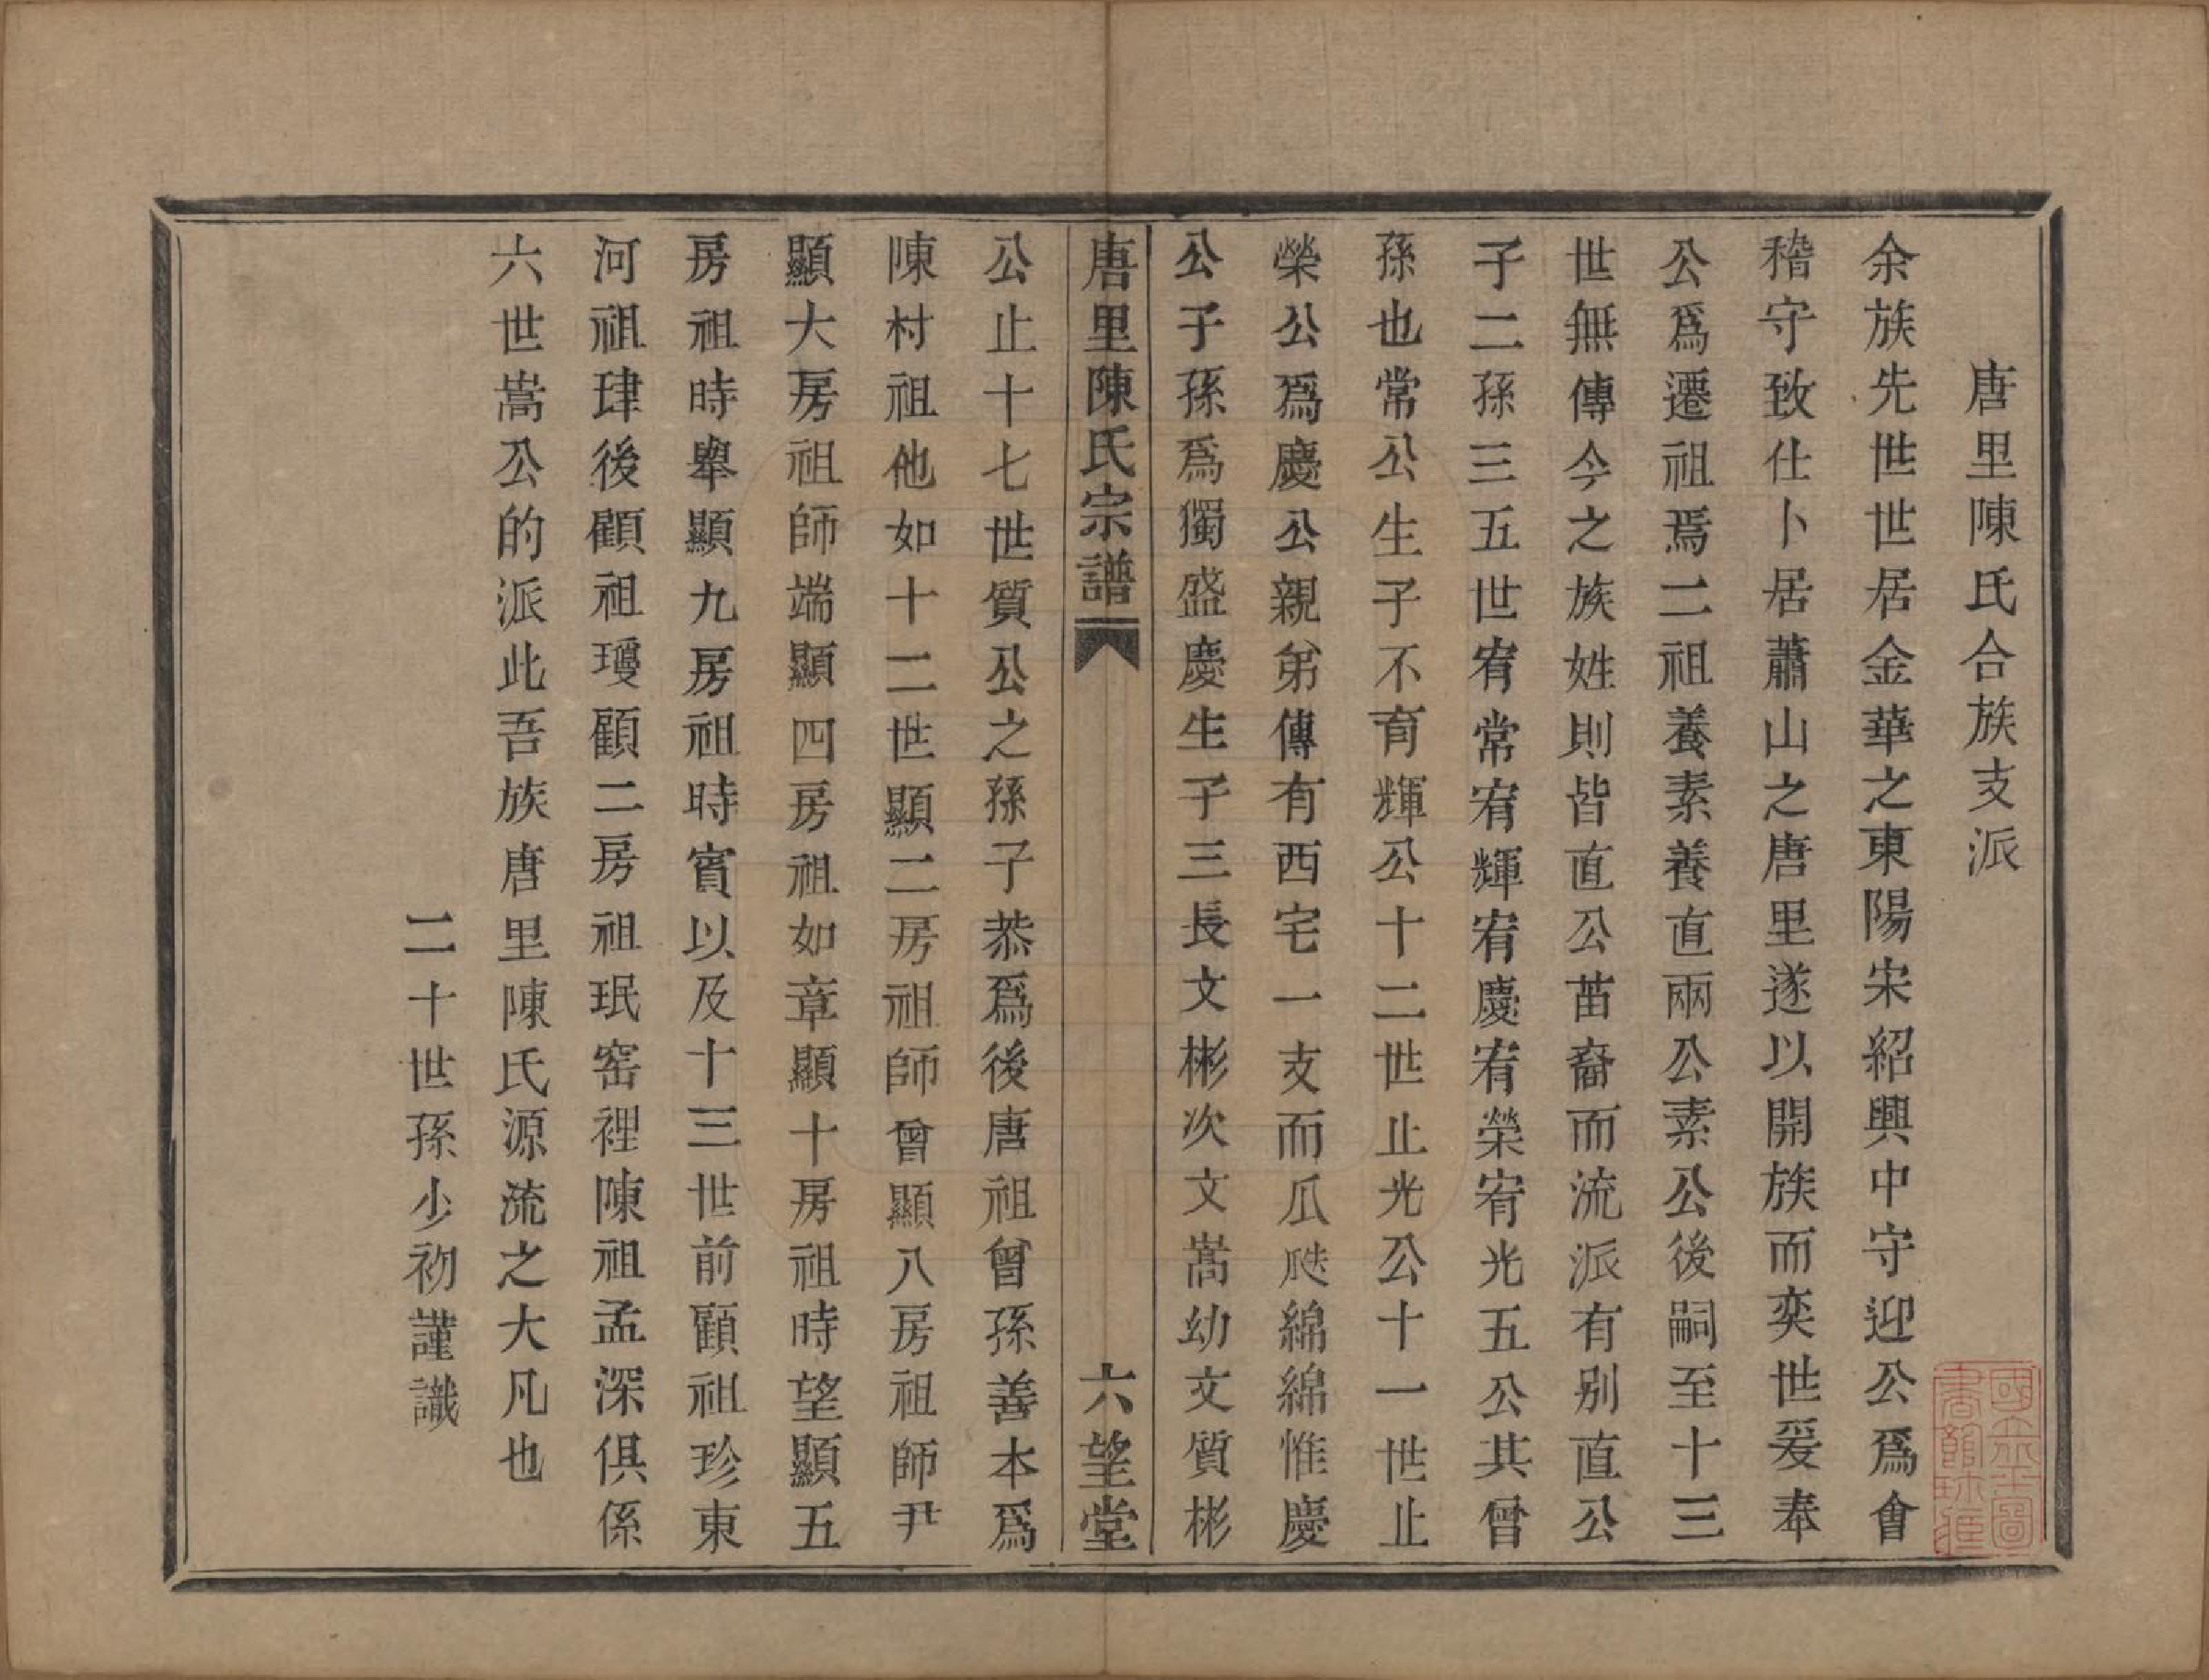 唐里陳氏合族支派
余族先世世居金華之東陽宋紹興中守迎公爲會
稽守致仕卜居蕭山之唐里遂以開族而奕世爰奉
公爲遷祖焉二祖養素養直兩公素公後嗣至十三
世無傳今之族姓則皆直公苗裔而流派有别直公
子二孫三五世宥常宥輝宥慶宥榮宥光五公其曾
孫也常公生子不育輝公十二世止光公十一世止
榮公爲慶公親弟傳有西宅一支而瓜瓞綿綿惟慶
公子孫爲獨盛慶生子三長文彬次文嵩幼文質彬
唐里陳氏宗譜
六望堂
公止十七世質公之孫子恭爲後唐祖曾孫善本爲
陳村祖他如十二世顯二房祖師曾顯八房祖師尹
顯大房祖師端顯四房祖如章顯十房祖時望顯五
房祖時舉顯九房祖時賓以及十三世前顧祖珍東
河祖珒後顧祖瓊顧二房祖珉窑裡陳祖孟深俱係
六世嵩公的派此吾族唐里陳氏源流之大凡也
二十世孫少初謹識
國立北平圖
書館珍藏